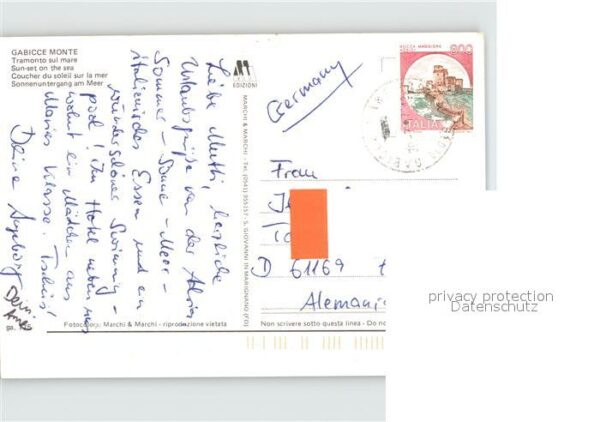 GABICCE MONTE
Tramonto sul mare
Sun-set on the sea
Coucher du soleil sur la mer
Sonnenuntergang am Meer
Liebe Mutti, herzliche
Urlaubsgrüsse von der Adria
Sommer - Sonne - Meer -
italienisches Essen und ein
wunderschöner Swimming-
pool! Im Hotel neben uns
wohnt ein Mädchen aus
Maries Klasse. Tschüs!
Deine Ingeborg
EDIZIONI
MARCHI & MARCHI - Tel. (0541) 955257 - S. GIOVANNI IN MARIGNANO (FO)
Germany
ROCCA MAGGIORE
800
ITALIA
Frau
D 61169
Alemania
Fotocolor, Marchi & Marchi - riproduzione vietata
Non scrivere sotto questa linea - Do no
privacy protection
Datenschutz